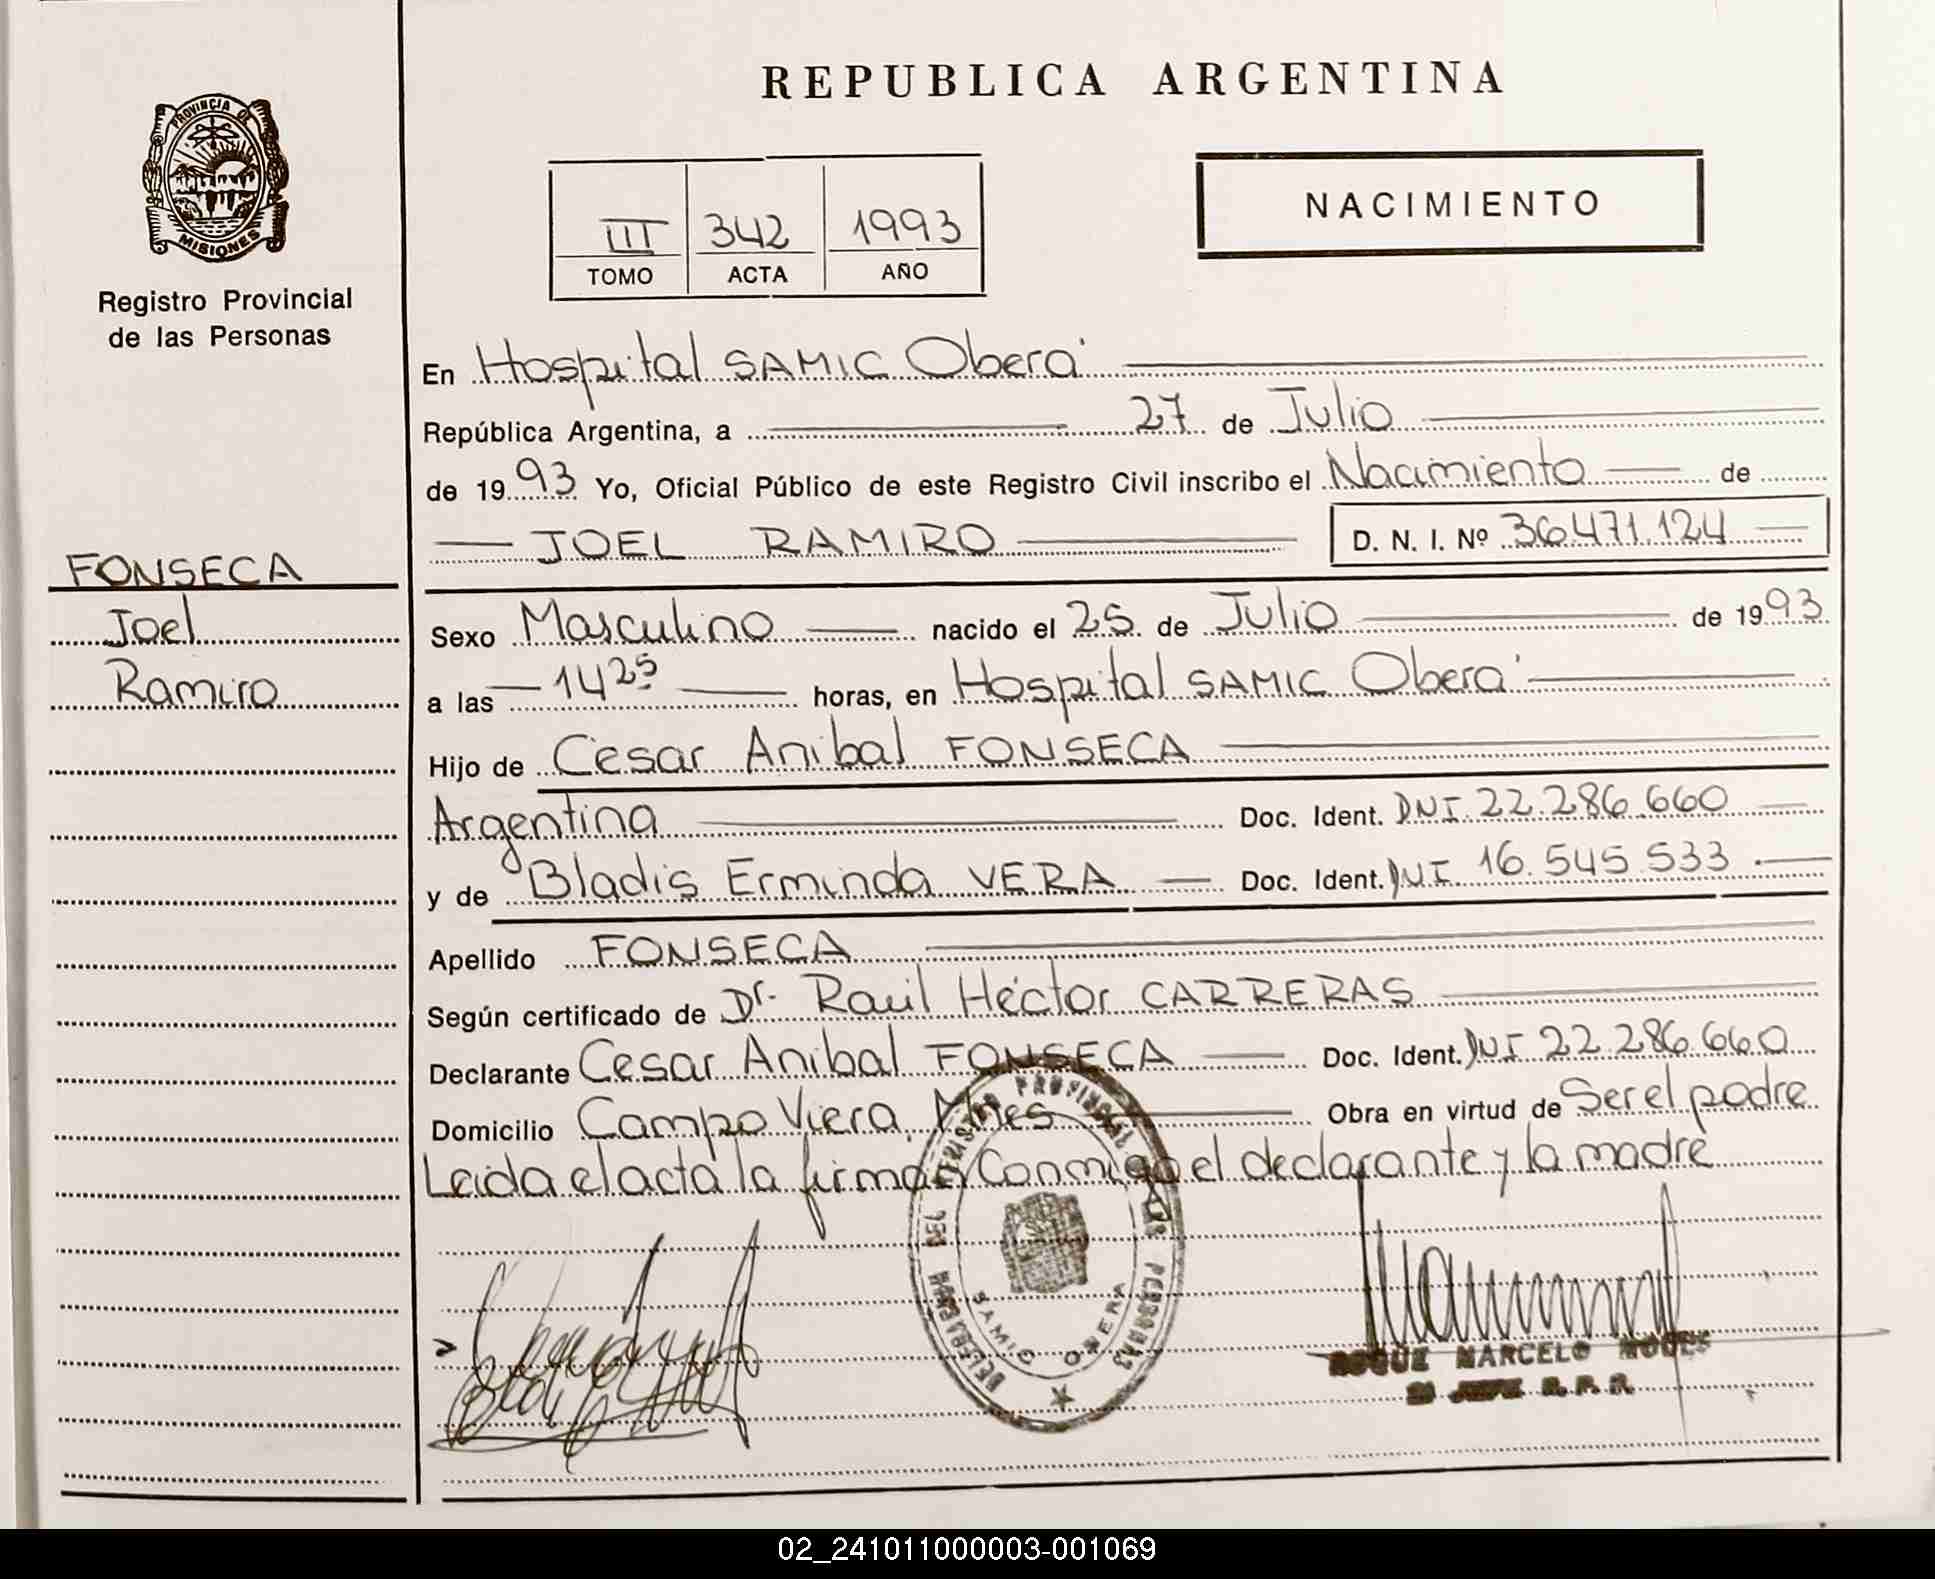 REPUBLICA ARGENTINA
PROVINCIA DE MISIONES
Registro Provincial
de las Personas
III 342 1993
TOMO ACTA AÑO
NACIMIENTO
En Hospital SAMIC Oberá
República Argentina, a 27 de Julio
de 1993 Yo, Oficial Público de este Registro Civil inscribo el Nacimiento de
JOEL RAMIRO D. N. I. Nº 36.471.124
FONSECA
Joel
Ramiro
Sexo Masculino nacido el 25 de Julio de 1993
a las 14 25 horas, en Hospital SAMIC Oberá
Hijo de Cesar Anibal FONSECA
Argentina Doc. Ident. DNI 22.286.660
y de Bladis Erminda VERA Doc. Ident. DNI 16.545.533
Apellido FONSECA
Según certificado de Dr. Raúl Héctor CARRERAS
Declarante Cesar Anibal FONSECA Doc. Ident. DNI 22.286.660
Domicilio Campo Viera, Mnes Obra en virtud de Ser el padre
Leida el acta la firman Conmigo el declarante y la madre
DEL REGISTRO PROVINCIAL DE LAS PERSONAS
SAMIC OBERA
ROQUE MARCELO
R. P. P.
02_241011000003-001069